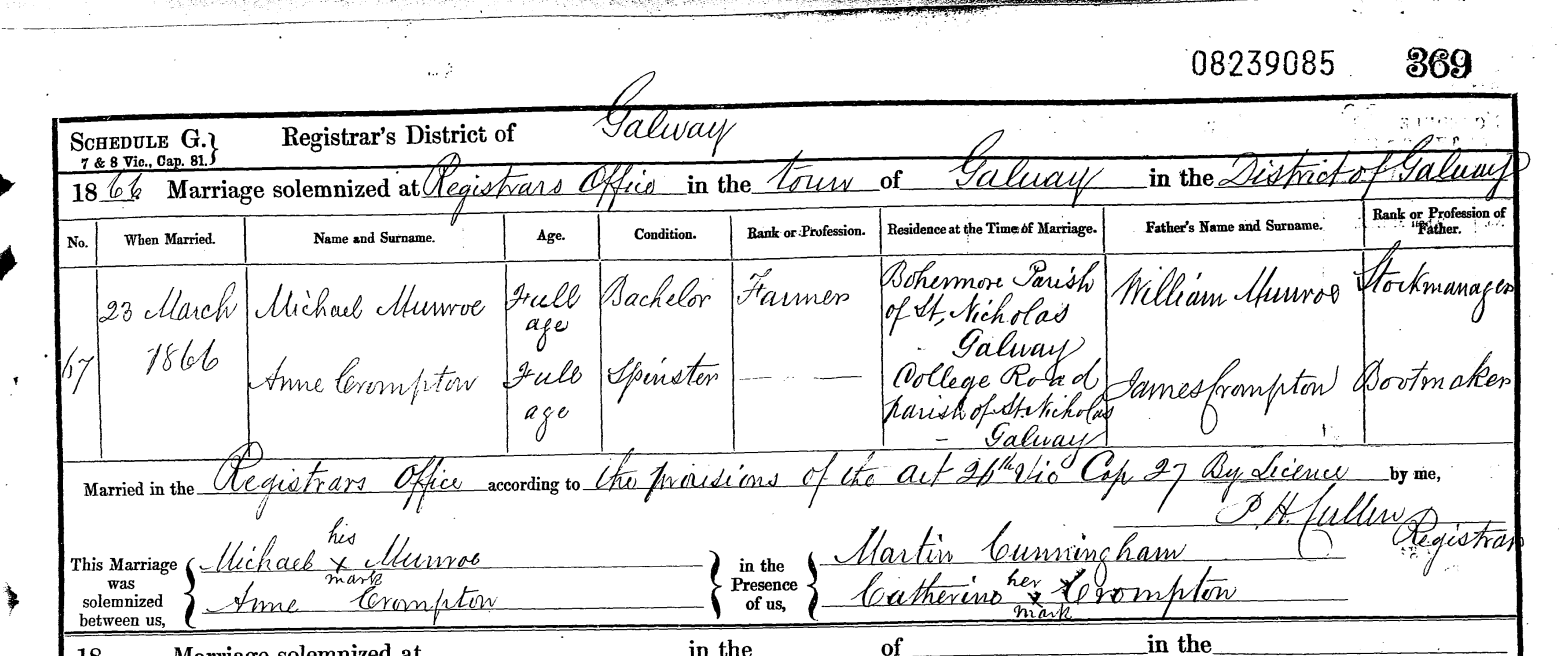 08239085 369
SCHEDULE G.} Registrar's District of Galway
7 & 8 Vic., Cap. 81.
1866 Marriage solemnized at Registrars Office in the town of Galway in the District of Galway
No. When Married. Name and Surname. Age. Condition. Rank or Profession. Residence at the Time of Marriage. Father's Name and Surname. Rank or Profession of Father.
67 23 March 1866 Michael Munroe Full age Bachelor Farmer Bohermore Parish of St. Nicholas Galway William Munroe Stockmanager
Anne Crompton Full age Spinster — — College Road parish of St. Nicholas - Galway James Crompton Bootmaker
Married in the Registrars Office according to the provisions of the act 26th Vic Cap 27 By Licence by me,
P. H. Cullen Registrar
This Marriage was solemnized between us, { Michael his x mark Munroe } in the Presence of us, { Martin Cunningham
Anne Crompton Catherine her x mark Crompton
18 Marriage solemnized at in the of in the